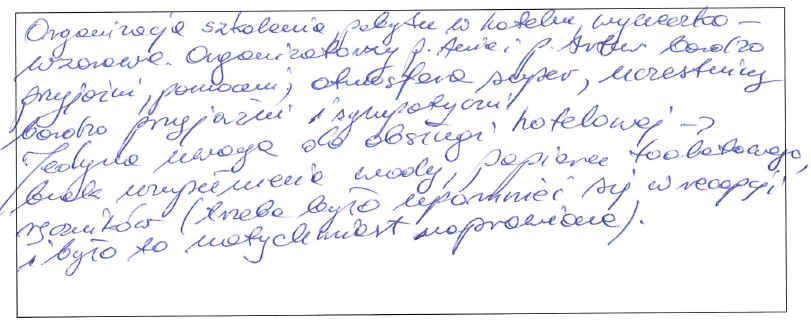 Organizacja szkolenia, pobytu w hotelu, wycieczka –
wzorowa. Organizatorzy p. Ania i p. Artur bardzo
przyjaźni, pomocni, atmosfera super, uczestnicy
bardzo przyjaźni i sympatyczni.
Jedyna uwaga do obsługi hotelowej ->
brak uzupełnienia wody, papieru toaletowego,
ręczników (trzeba było upomnieć się w recepcji
i było to natychmiast naprawiane).